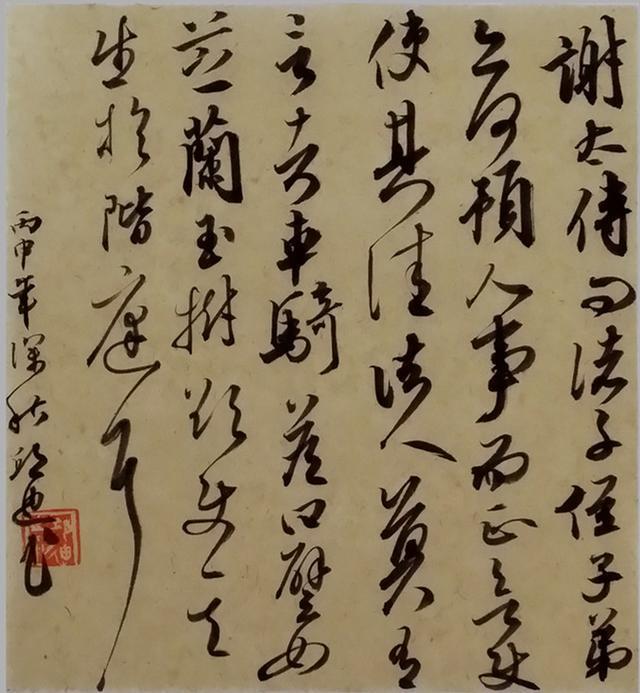 謝太傅問諸子侄子弟
亦何預人事而正欲
使其佳諸人莫有
言者車騎答曰譬如
芝蘭玉樹欲使其
生於階庭耳
丙申年深秋